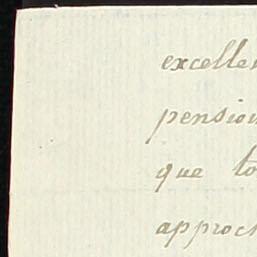 excelle
pension
que to
approc